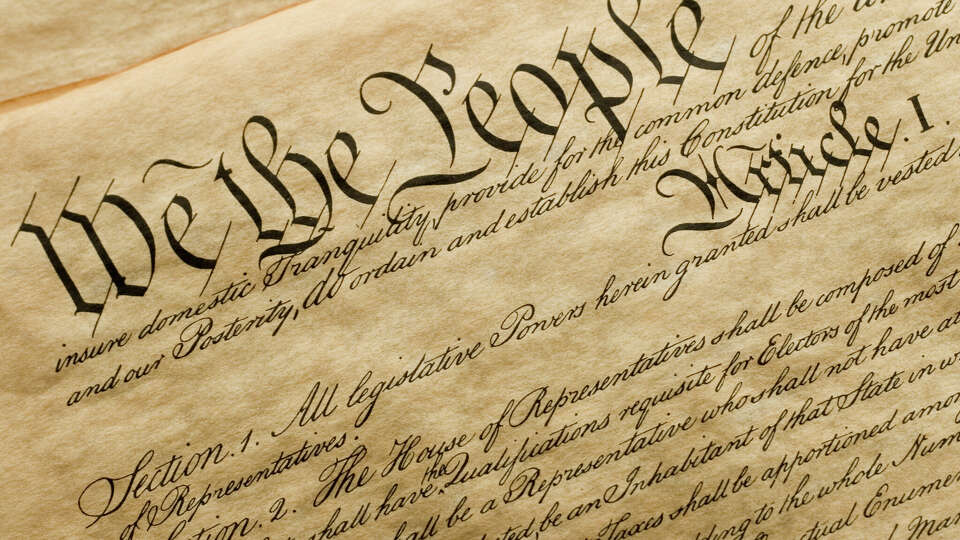 We the People of the
insure domestic Tranquility, provide for the common defence, promote
and our Posterity, do ordain and establish this Constitution for the Un
Article. I.
Section. 1. All legislative Powers herein granted shall be vested
of Representatives.
ction. 2. The House of Representatives shall be composed of
shall have the Qualifications requisite for Electors of the most
hall be a Representative who shall not have at
cted, be an Inhabitant of that State in w
Taxes shall be apportioned amon
ding to the whole Num
ctual Enumer